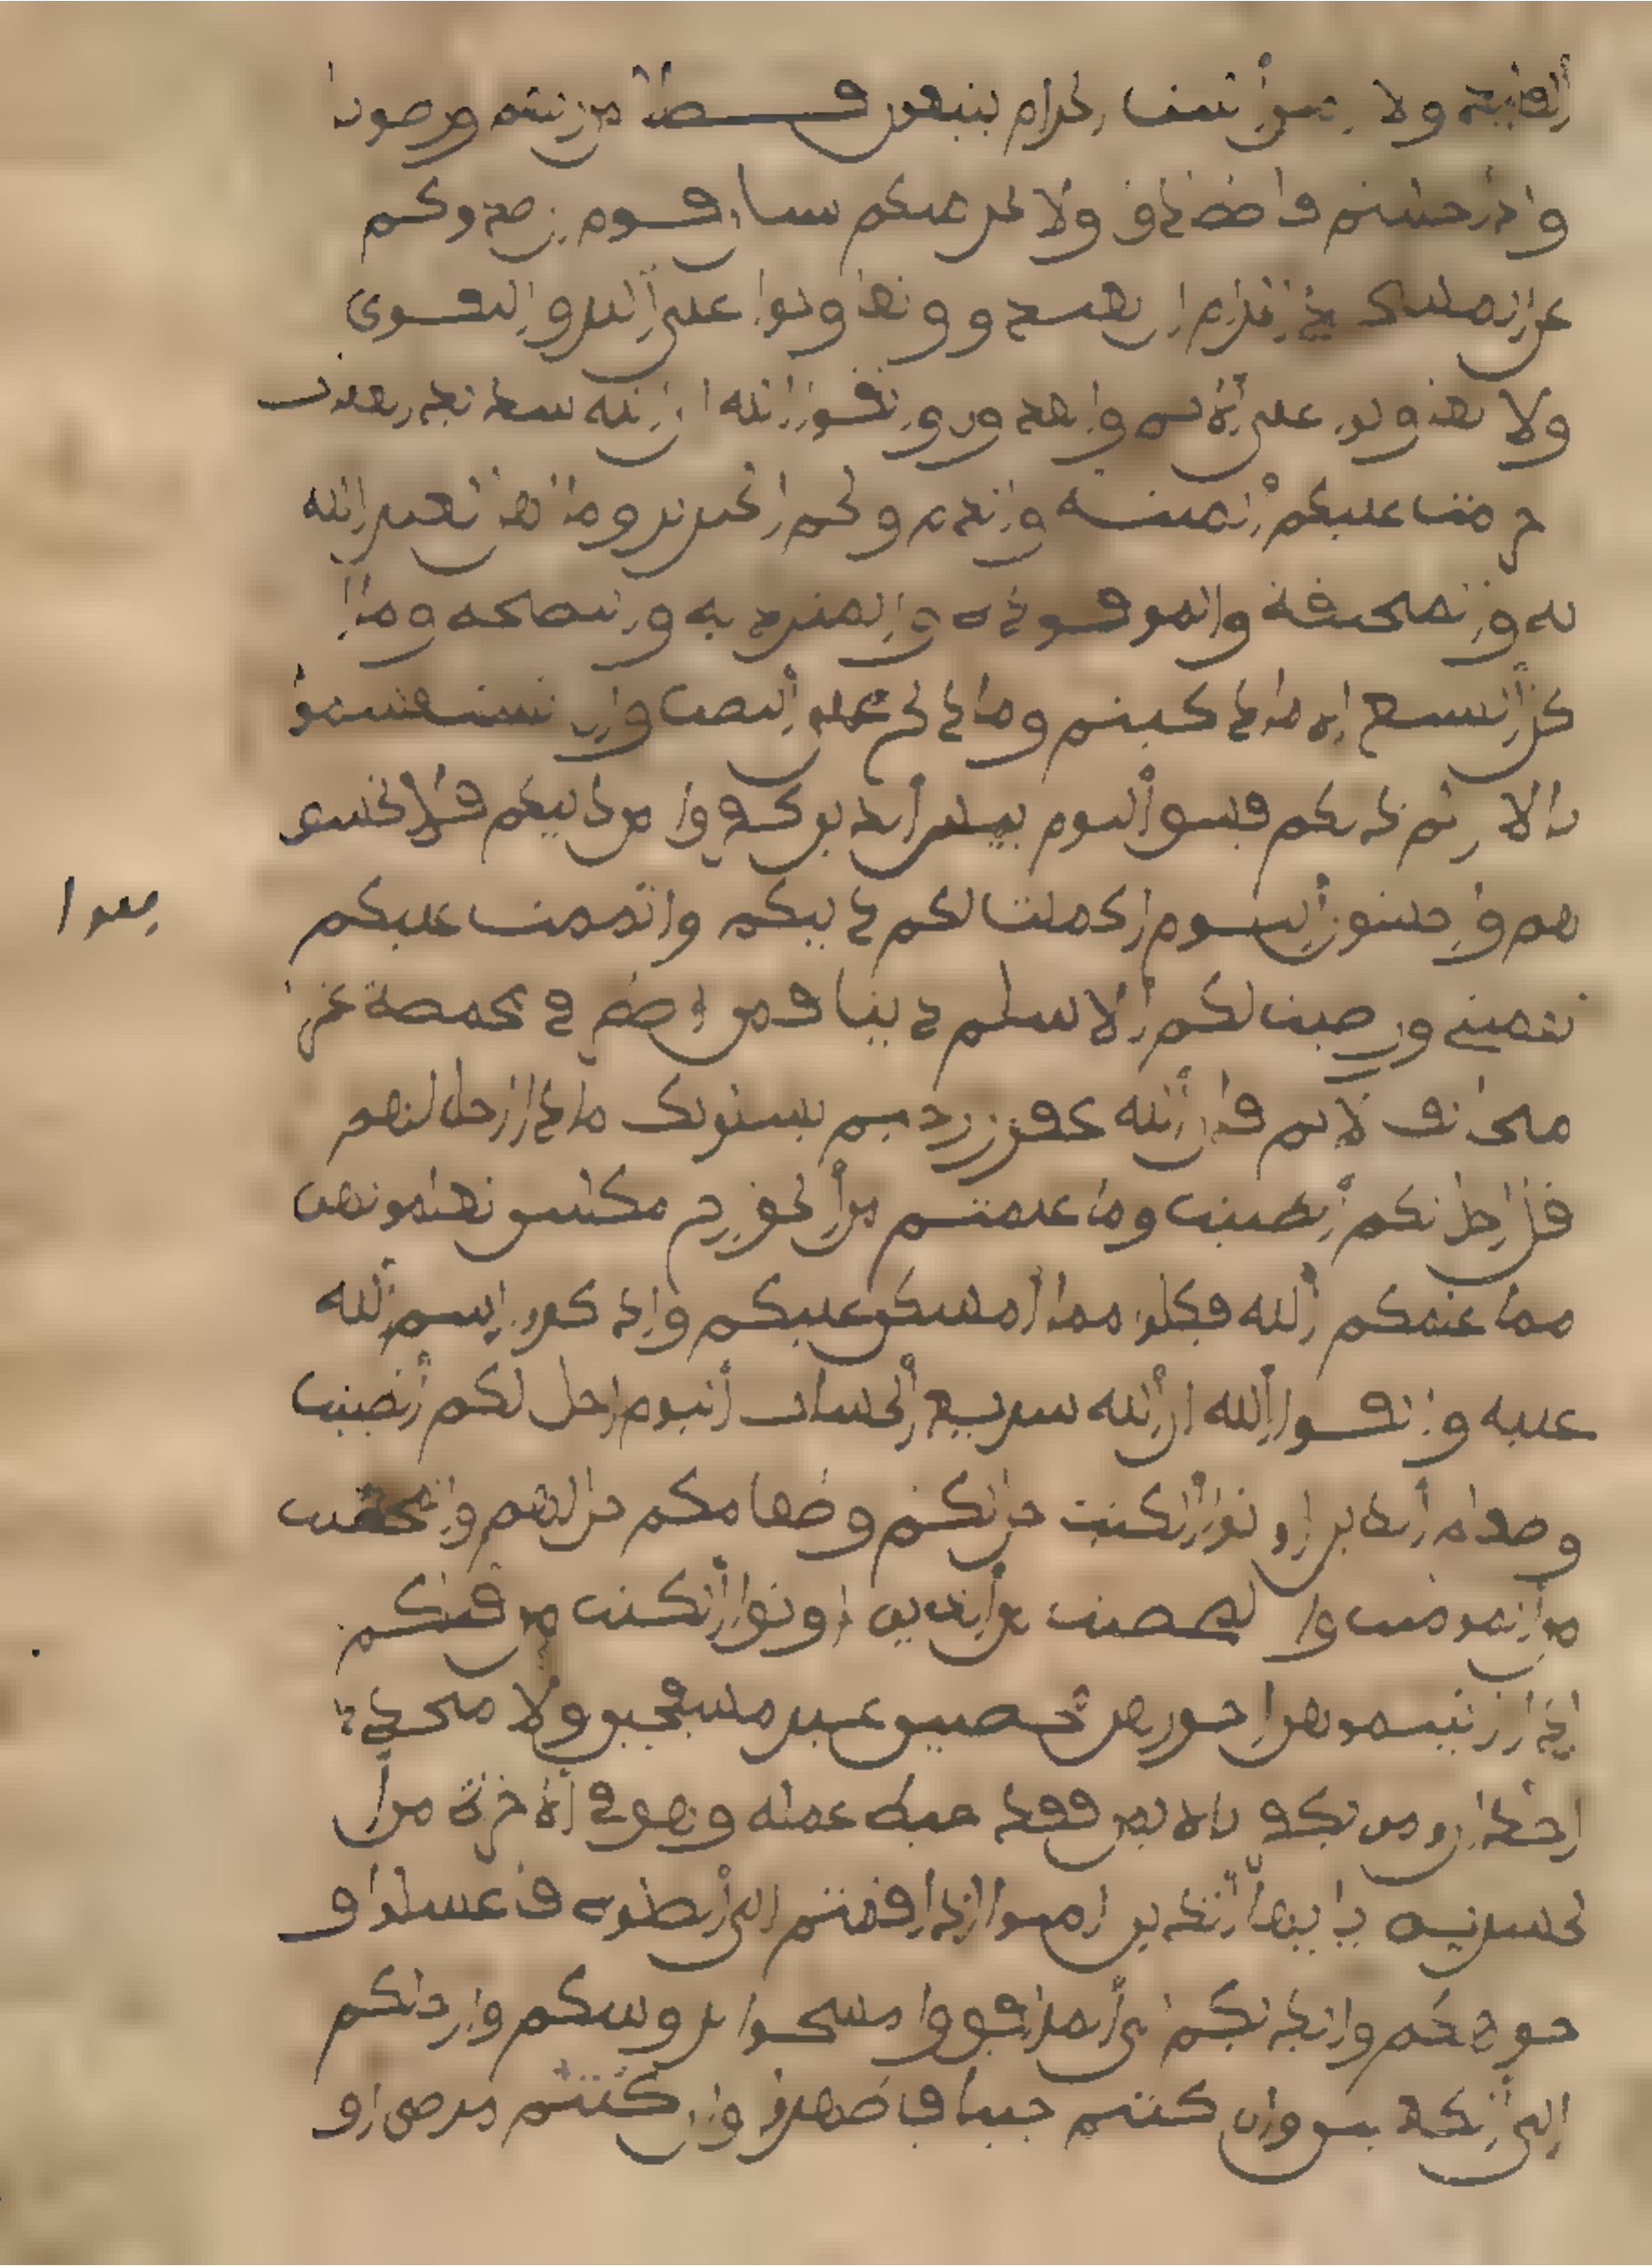 ألقليد ولا امين ألبيت الحرام يبتغون فضلا من ربهم ورضونا
واذا حللتم فاصطادوا ولا يجرمنكم شنان قوم ان صدوكم
عن المسجد الحرام ان تعتدوا وتعاونوا على البر والتقوى
ولا تعاونوا على الاثم والعدون واتقوا الله ان الله شديد العقاب
حرمت عليكم الميتة والدم ولحم الخنزير وما أهل لغير الله
به والمنخنقة والموقوذة والمتردية والنطيحة وما أ
كل السبع الا ما ذكيتم وما ذبح على النصب وان تستقسموا
بالازلم ذلكم فسق اليوم يئس الذين كفروا من دينكم فلا تخشو
هم واخشون اليوم اكملت لكم دينكم واتممت عليكم
نعمتي ورضيت لكم الاسلم دينا فمن اضطر في مخمصة غير
متجانف لاثم فان الله غفور رحيم يسئلونك ماذا احل لهم
قل احل لكم الطيبت وما علمتم من الجوارح مكلبين تعلمونهن
مما علمكم الله فكلوا مما امسكن عليكم واذكروا اسم الله
عليه واتقوا الله ان الله سريع الحساب اليوم احل لكم الطيبت
وطعام الذين اوتوا الكتب حل لكم وطعامكم حل لهم والمحصنت
من المومنت والمحصنت من الذين اوتوا الكتب من قبلكم
اذا اتيتموهن اجورهن محصنين غير مسفحين ولا متخذي
اخدان ومن يكفر بالايمن فقد حبط عمله وهو في الاخرة من ا
لخسرين يا أيها الذين امنوا اذا قمتم الى الصلوة فاغسلوا و
جوهكم وايديكم الى المرافق وامسحوا بروسكم وارجلكم
الى الكعبين وان كنتم جنبا فاطهروا وان كنتم مرضى او